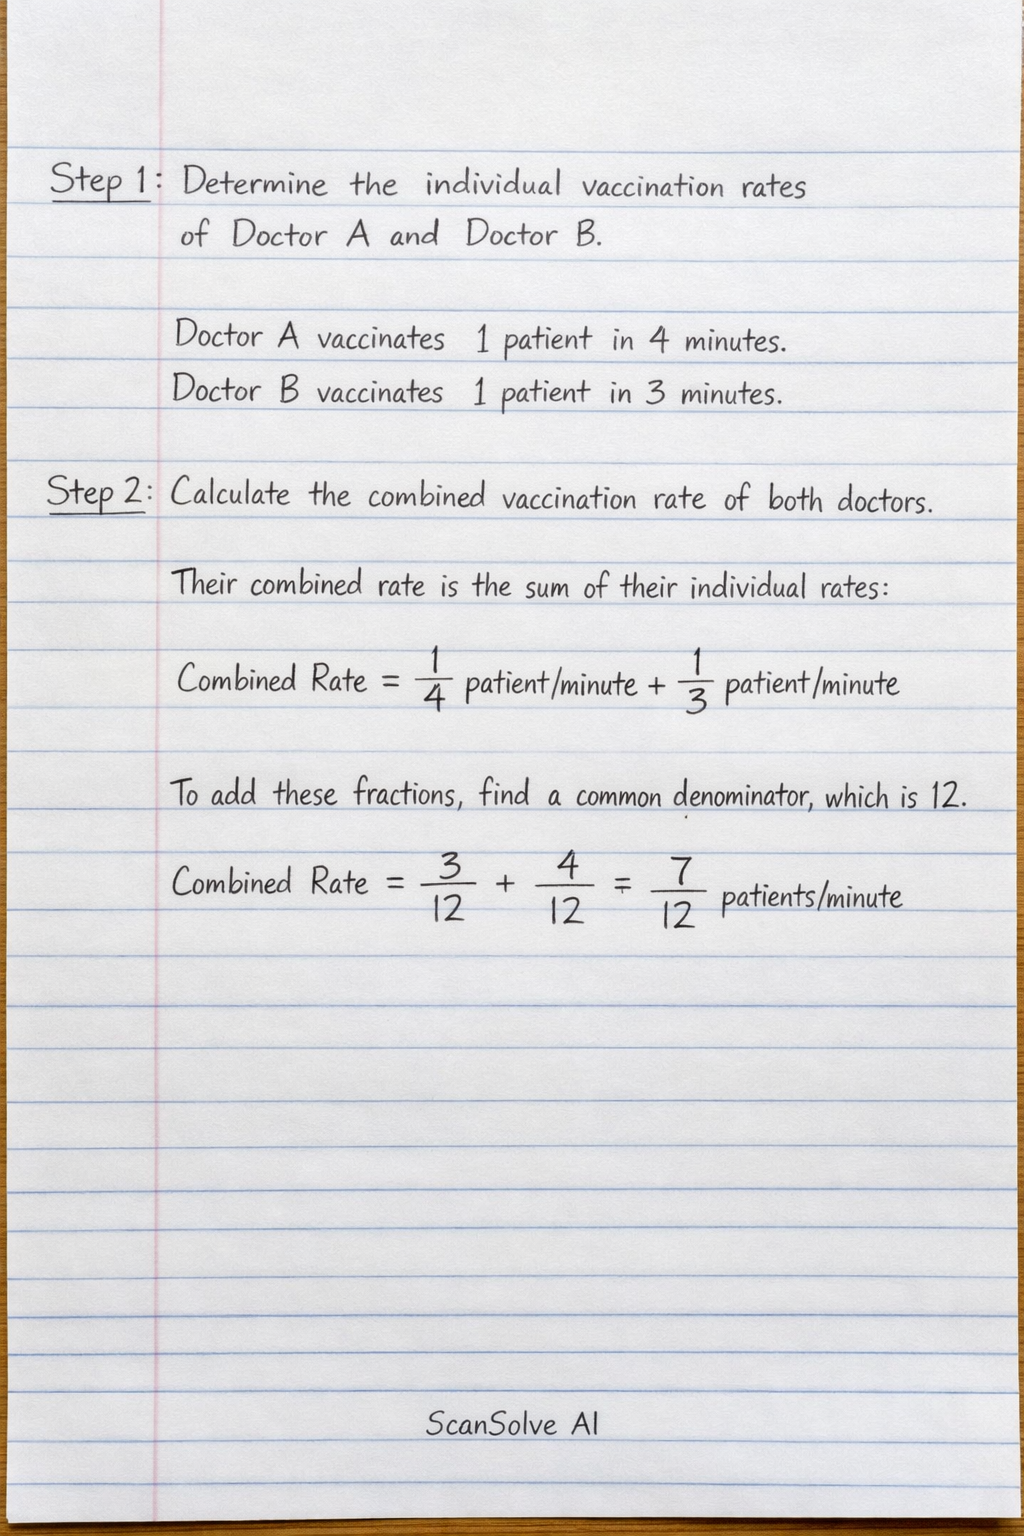 Step 1: Determine the individual vaccination rates
of Doctor A and Doctor B.
Doctor A vaccinates 1 patient in 4 minutes.
Doctor B vaccinates 1 patient in 3 minutes.
Step 2: Calculate the combined vaccination rate of both doctors.
Their combined rate is the sum of their individual rates:
Combined Rate = 1/4 patient/minute + 1/3 patient/minute
To add these fractions, find a common denominator, which is 12.
Combined Rate = 3/12 + 4/12 = 7/12 patients/minute
ScanSolve AI